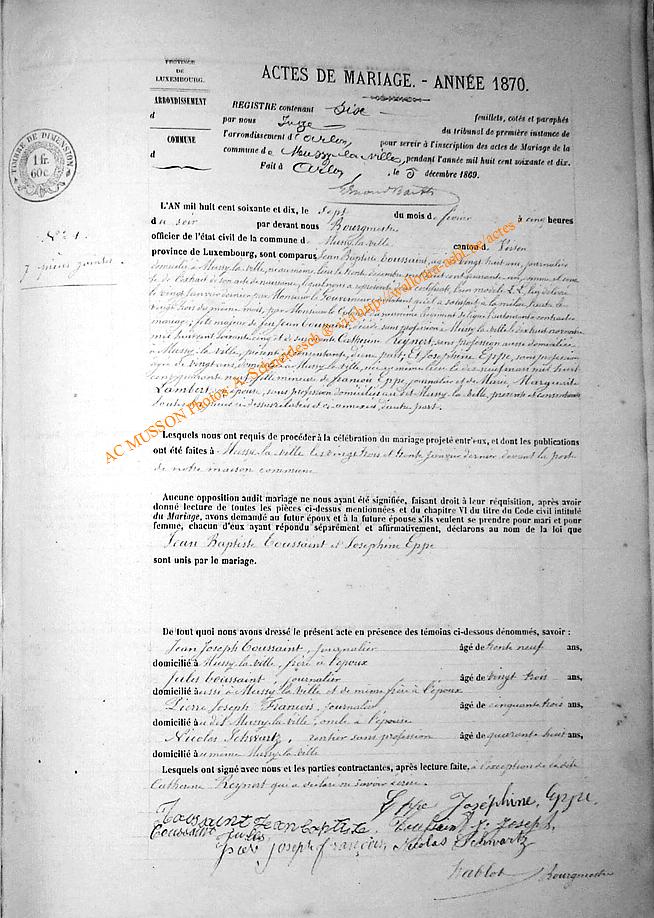 PROVINCE
DE
LUXEMBOURG.
ARRONDISSEMENT
d
COMMUNE
d
TIMBRE DE DIMENSION
1 fr.
60c.
N° 1.
7 pièces jointes
ACTES DE MARIAGE. - ANNÉE 1870.
REGISTRE contenant Dix feuillets, cotés et paraphés
par nous Juge du tribunal de première instance de
l'arrondissement d'Arlon pour servir à l'inscription des actes de Mariage de la
commune de Mussy-la-ville, pendant l'année mil huit cent soixante et dix.
Fait à Arlon, le 5 décembre 1869.
L'AN mil huit cent soixante et dix, le Sept du mois de février à cinq heures
du soir par devant nous Bourgmestre
officier de l'état civil de la commune de Mussy-la-ville canton de Virton
province de Luxembourg, sont comparus Jean Baptiste Toussaint, âgé de vingt huit ans, journalier
domicilié à Mussy-la-ville, né au même lieu le trente décembre mil huit cent quarante un, comme il conste
de l'extrait de son acte de naissance, lequel nous a représenté un certificat, bon modèle L.L. lui délivré
le vingt janvier dernier par Monsieur le Gouverneur
du même mois, par Monsieur le
mariage; fils majeur de feu Jean Toussaint, décédé sans profession à Mussy-la-ville le dix huit novembre
mil huit cent soixante cinq et de survivante Catherine Reynert, sans profession avec domicile
à Mussy-la-ville, présente et consentante, d'une part; Et Josephine Eppe, sans profession
âgée de vingt ans, domiciliée à Mussy-la-ville, née au même lieu le dix neuf mai mil huit
cent quarante neuf, fille mineure de François Eppe, journalier et de Marie Marguerite
Lambert, son épouse, sans profession domiciliés au dit Mussy-la-ville, présents et consentants
d'autre part.
Lesquels nous ont requis de procéder à la célébration du mariage projeté entr'eux, et dont les publications
ont été faites à Mussy-la-ville les vingt trois et trente janvier dernier devant la porte
de notre maison commune
Aucune opposition audit mariage ne nous ayant été signifiée, faisant droit à leur réquisition, après avoir
donné lecture de toutes les pièces ci-dessus mentionnées et du chapitre VI du titre du Code civil intitulé
du Mariage, avons demandé au futur époux et à la future épouse s'ils veulent se prendre pour mari et pour
femme, chacun d'eux ayant répondu séparément et affirmativement, déclarons au nom de la loi que
Jean Baptiste Toussaint et Josephine Eppe
sont unis par le mariage.
De tout quoi nous avons dressé le présent acte en présence des témoins ci-dessous dénommés, savoir :
Jean Joseph Toussaint, journalier âgé de trente neuf ans,
domicilié à Mussy-la-ville, frère à l'époux
Jules Toussaint, journalier âgé de vingt trois ans,
domicilié aussi à Mussy-la-ville et de même frère à l'époux
Pierre Joseph François, journalier âgé de cinquante trois ans,
domicilié au dit Mussy-la-ville, oncle à l'épouse
Nicolas Schwartz, rentier sans profession âgé de quarante huit ans,
domicilié au même Mussy-la-ville
Lesquels ont signé avec nous et les parties contractantes, après lecture faite, à l'exception de la dite
Catherine Reynert qui a déclaré ne savoir écrire.
Eppe Joséphine, Eppe
Toussaint Jean Baptiste, Toussaint J. Joseph,
Toussaint Jules
pier joseph françois, Nicolas Schwartz
Bourgmestre
AC MUSSON Photos: A. Schneidesch © via http://wallonia-asbl.be/actes